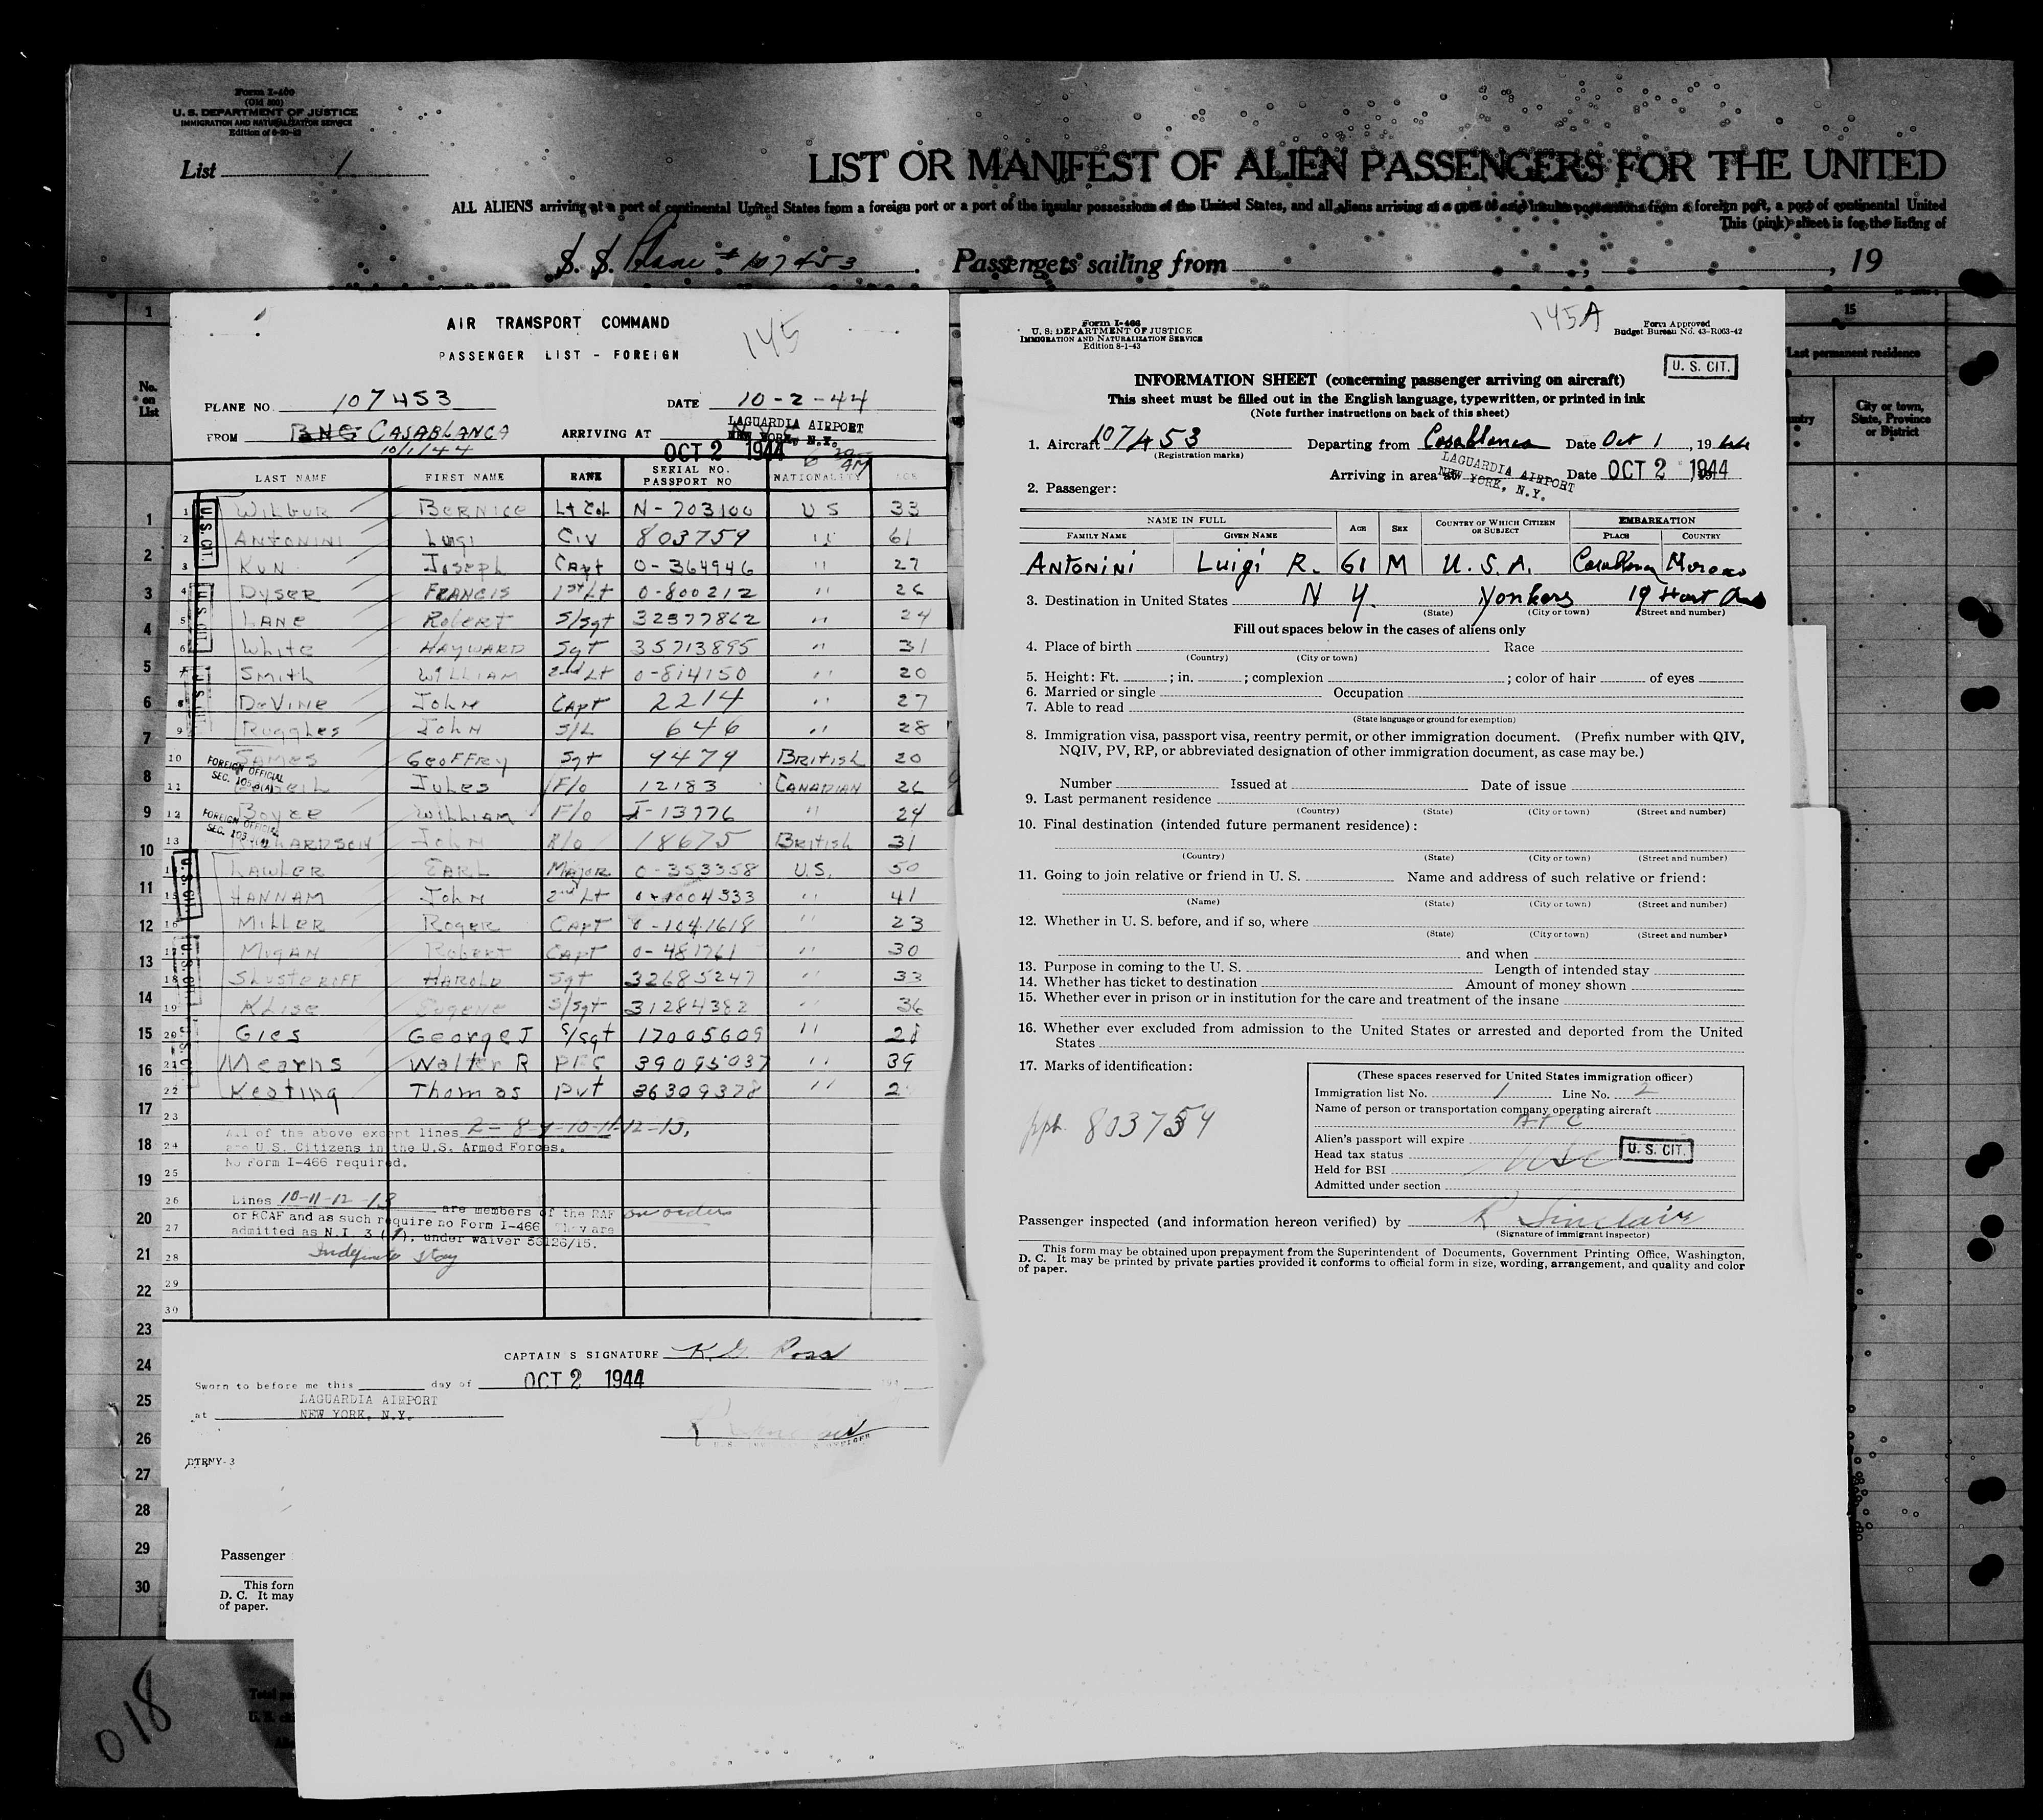 Form I-400
(Old 500)
U. S. DEPARTMENT OF JUSTICE
IMMIGRATION AND NATURALIZATION SERVICE
List 1
LIST OR MANIFEST OF ALIEN PASSENGERS FOR THE UNITED
ALL ALIENS arriving at a port of continental United States from a foreign port or a port of the insular possessions of the United States, and all aliens arriving at a port of said insular possessions from a foreign port, a port of continental United
This (pink) sheet is for the listing of
S. S. Plane # 107453 Passengers sailing from , , 19
AIR TRANSPORT COMMAND
PASSENGER LIST - FOREIGN
145
PLANE NO. 107453 DATE 10-2-44
FROM BNG CASABLANCA ARRIVING AT LAGUARDIA AIRPORT
NEW YORK, N.Y.
10/1/44 OCT 2 1944 6 AM
LAST NAME FIRST NAME RANK SERIAL NO. PASSPORT NO NATIONALITY AGE
1 WILBUR BERNICE Lt Col N-703100 US 33
2 ANTONINI Luigi Civ 803759 " 61
3 KUN Joseph Capt 0-364946 " 27
4 Dyser FRANCIS 1st Lt 0-800212 " 26
5 LANE Robert S/Sgt 32577862 " 24
6 White HAYWARD Sgt 35713895 " 31
7 Smith WILLIAM 2nd Lt 0-814150 " 20
8 DeVine John CAPT 2214 " 27
9 Ruggles John S/L 646 " 28
10 JAMES GEOFFREY Sgt 9479 BRITISH 20
11 Jules F/o 12183 CANADIAN 26
12 Boyce William F/o J-13776 " 24
13 RICHARDSON John R/o 18675 British 31
14 LAWLER EARL MAJOR 0-353358 U.S. 50
15 HANNAM John 2nd Lt 0-1004333 " 41
16 MILLER ROGER CAPT 0-1041618 " 23
17 MUGAN Robert CAPT 0-481761 " 30
18 Shusteroff HAROLD Sgt 32685247 " 33
19 Klise Eugene S/Sgt 31284382 " 36
20 Gies George J S/sgt 17005609 " 28
21 Mearns Walter R PFC 39095037 " 39
22 Keating Thomas Pvt 36309378 " 2
U.S. CIT.
U.S. CIT.
U.S. CIT.
FOREIGN OFFICIAL
SEC. 103
FOREIGN OFFICIAL
SEC. 103
U.S. CIT.
U.S. CIT.
23
All of the above except lines 2-8-9-10-11-12-13,
24 are U.S. Citizens in the U.S. Armed Forces.
No Form I-466 required.
25
26 Lines 10-11-12-13 are members of the RAF on orders
or RCAF and as such require no Form I-466 They are
27 admitted as N.I. 3 (1), under waiver 56126/15.
28 Indefinite stay
29
30
CAPTAIN S SIGNATURE K.G. Ross
Sworn to before me this day of OCT 2 1944 194
at LAGUARDIA AIRPORT
NEW YORK, N.Y.
DTRNY-3
Passenger
This form
D. C. It may
of paper.
018
Form I-466
U. S. DEPARTMENT OF JUSTICE
IMMIGRATION AND NATURALIZATION SERVICE
Edition 8-1-43
145A
Form Approved
Budget Bureau No. 43-R063-42
U. S. CIT.
INFORMATION SHEET (concerning passenger arriving on aircraft)
This sheet must be filled out in the English language, typewritten, or printed in ink
(Note further instructions on back of this sheet)
1. Aircraft 107453 Departing from Casablanca Date Oct 1, 1944
(Registration marks)
Arriving in area at LAGUARDIA AIRPORT NEW YORK, N.Y. Date OCT 2 1944
2. Passenger:
NAME IN FULL AGE SEX COUNTRY OF WHICH CITIZEN OR SUBJECT EMBARKATION
FAMILY NAME GIVEN NAME PLACE COUNTRY
ANTONINI Luigi R. 61 M U.S.A. Casablanca Morocco
3. Destination in United States N Y. Yonkers 19 Hart Ave
(State) (City or town) (Street and number)
Fill out spaces below in the cases of aliens only
4. Place of birth Race
(Country) (City or town)
5. Height: Ft. ; in. ; complexion ; color of hair of eyes
6. Married or single Occupation
7. Able to read
(State language or ground for exemption)
8. Immigration visa, passport visa, reentry permit, or other immigration document. (Prefix number with QIV,
NQIV, PV, RP, or abbreviated designation of other immigration document, as case may be.)
Number Issued at Date of issue
9. Last permanent residence
(Country) (State) (City or town) (Street and number)
10. Final destination (intended future permanent residence):
(Country) (State) (City or town) (Street and number)
11. Going to join relative or friend in U. S. Name and address of such relative or friend:
(Name) (State) (City or town) (Street and number)
12. Whether in U. S. before, and if so, where
(State) (City or town) (Street and number)
and when
13. Purpose in coming to the U. S. Length of intended stay
14. Whether has ticket to destination Amount of money shown
15. Whether ever in prison or in institution for the care and treatment of the insane
16. Whether ever excluded from admission to the United States or arrested and deported from the United
States
17. Marks of identification:
ppt. 803759
(These spaces reserved for United States immigration officer)
Immigration list No. 1 Line No. 2
Name of person or transportation company operating aircraft
ATC
Alien's passport will expire
Head tax status USC U. S. CIT.
Held for BSI
Admitted under section
Passenger inspected (and information hereon verified) by R Sinclair
(Signature of immigrant inspector)
This form may be obtained upon prepayment from the Superintendent of Documents, Government Printing Office, Washington,
D. C. It may be printed by private parties provided it conforms to official form in size, wording, arrangement, and quality and color
of paper.
15
Last permanent residence
City or town,
State, Province
or District
No.
on
List
1
1
2
3
4
5
6
7
8
9
10
11
12
13
14
15
16
17
18
19
20
21
22
23
24
25
26
27
28
29
30